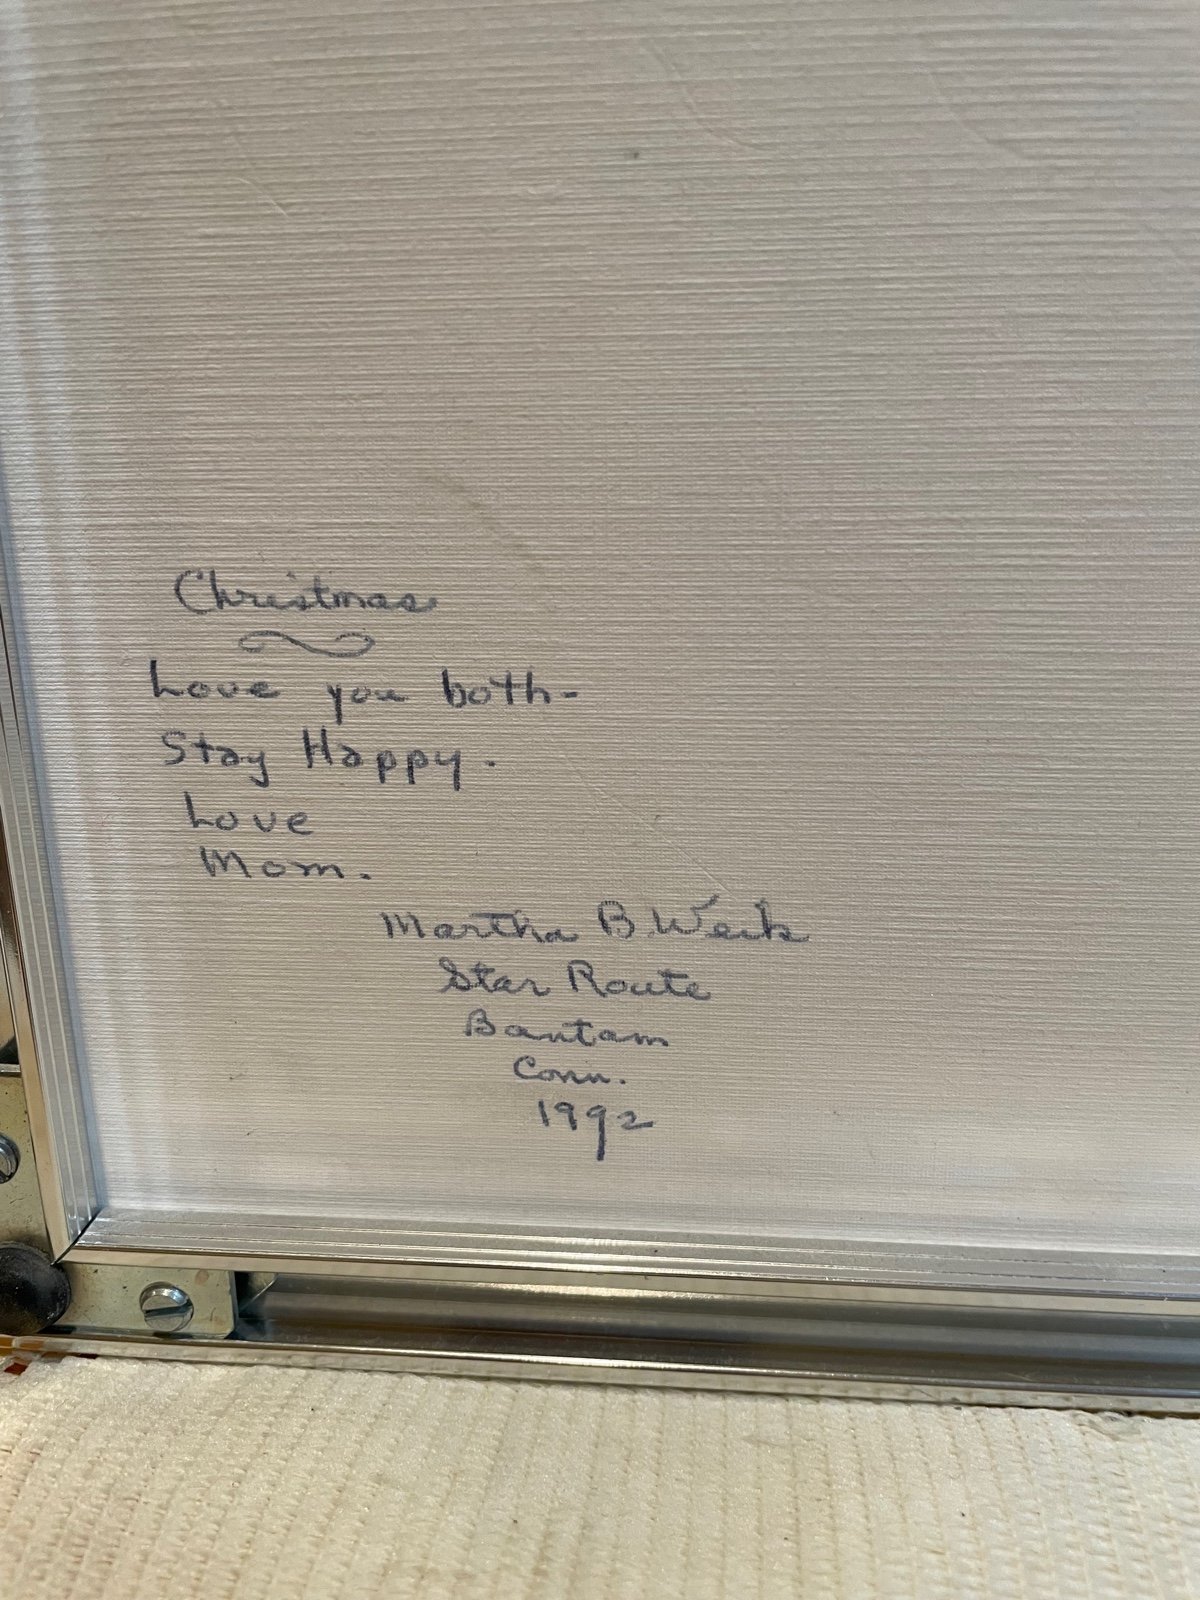 Christmas
Love you both-
Stay Happy.
Love
Mom.
Martha B.
Star Route
Bantam
Conn.
1992